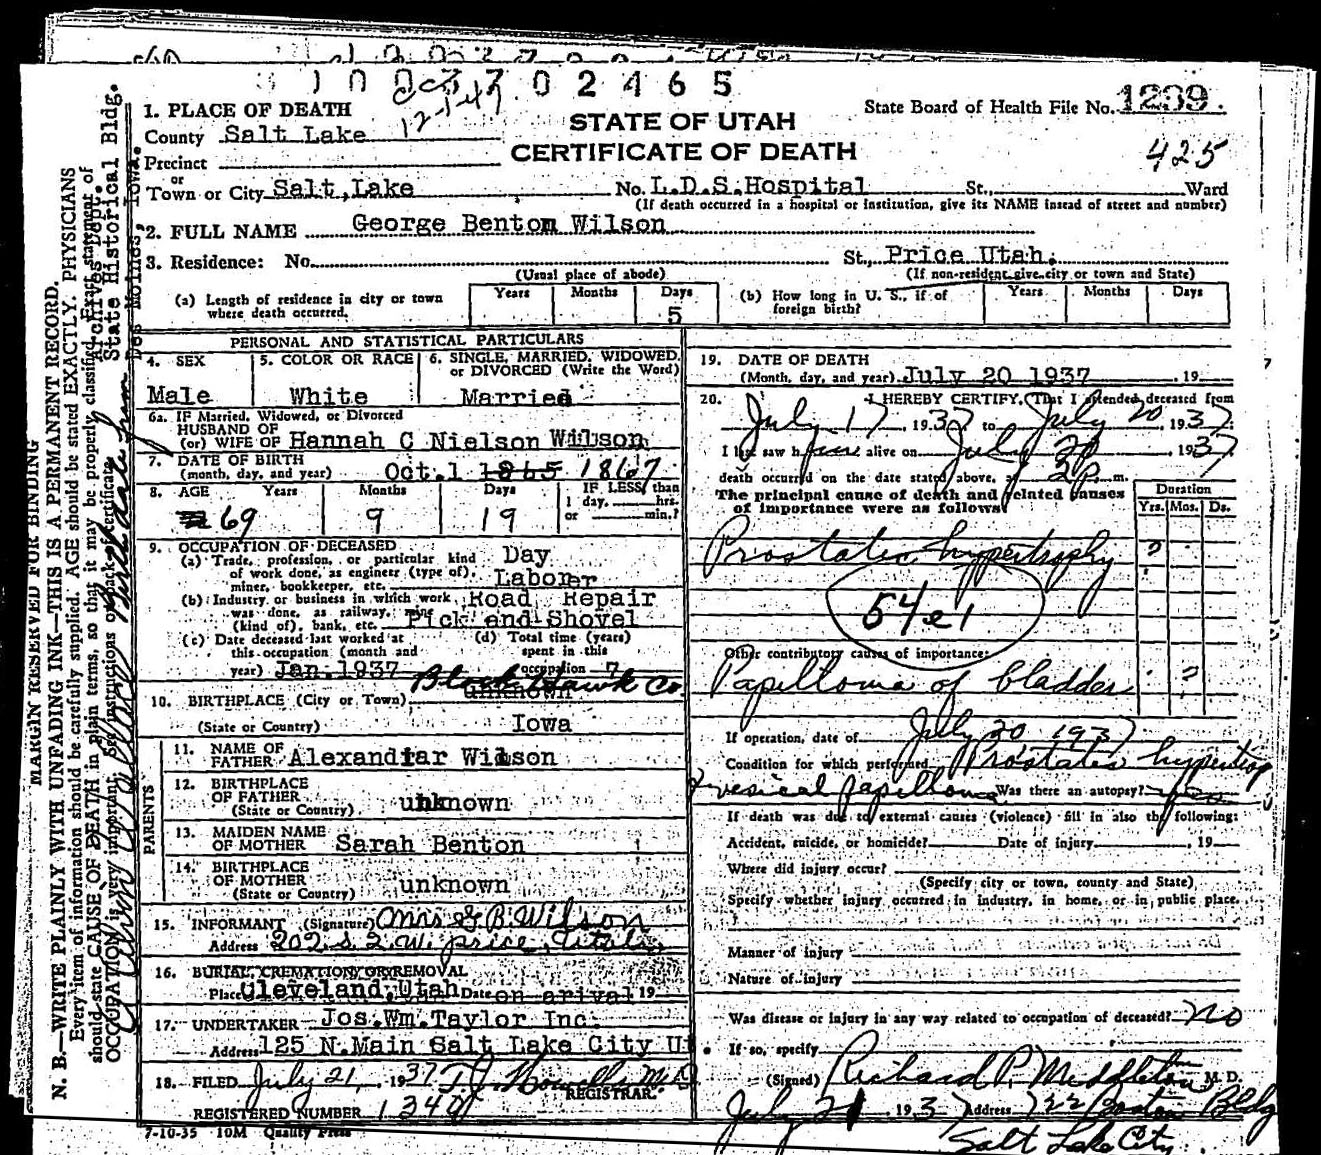 1 0 0 3 7 0 2 4 6 5
12-1-47
1. PLACE OF DEATH
County Salt Lake
Precinct
or
Town or City Salt Lake
STATE OF UTAH
CERTIFICATE OF DEATH
State Board of Health File No. 1239.
425
No. L.D.S. Hospital St., Ward
(If death occurred in a hospital or institution, give its NAME instead of street and number)
2. FULL NAME George Benton Wilson
3. Residence: No. St., Price Utah.
(Usual place of abode) (If non-resident give city or town and State)
(a) Length of residence in city or town where death occurred. Years Months Days 5
(b) How long in U. S., if of foreign birth? Years Months Days
PERSONAL AND STATISTICAL PARTICULARS
4. SEX Male
5. COLOR OR RACE White
6. SINGLE, MARRIED, WIDOWED, or DIVORCED (Write the Word) Married
6a. IF Married, Widowed, or Divorced
HUSBAND OF
(or) WIFE OF Hannah C Nielson Wilson
7. DATE OF BIRTH
(month, day, and year) Oct. 1 1865 1867
8. AGE Years Months Days IF LESS than
1 day, hrs.
or min.?
69 9 19
9. OCCUPATION OF DECEASED
(a) Trade, profession, or particular kind of work done, as engineer (type of), miner, bookkeeper, etc. Day Laborer
(b) Industry or business in which work was done, as railway, mine (kind of), bank, etc. Road Repair Pick and Shovel
(c) Date deceased last worked at this occupation (month and year) Jan. 1937
(d) Total time (years) spent in this occupation 7
10. BIRTHPLACE (City or Town) unknown Black Hawk Co.
(State or Country) Iowa
PARENTS
11. NAME OF FATHER Alexandiar Wilson
12. BIRTHPLACE OF FATHER
(State or Country) unknown
13. MAIDEN NAME OF MOTHER Sarah Benton
14. BIRTHPLACE OF MOTHER
(State or Country) unknown
15. INFORMANT (Signature) Mrs G B. Wilson
Address 202 S 2 W. price, Utah,
16. BURIAL, CREMATION, OR REMOVAL
Place Cleveland, Utah Date on arival 19
17. UNDERTAKER Jos. Wm. Taylor Inc.
Address 125 N. Main Salt Lake City Ut.
18. FILED July 21, 1937 T. J. Howells M.D.
REGISTRAR.
REGISTERED NUMBER 1349
7-10-35 10M Quality Press
19. DATE OF DEATH
(Month, day, and year) July 20 1937, 19
20. I HEREBY CERTIFY, (That I attended deceased from
July 17, 1937 to July 20, 1937
I last saw him alive on July 20, 1937
death occurred on the date stated above, at 2 p. m.
The principal cause of death and related causes of importance were as follows:
Duration
Yrs. Mos. Ds.
Prostatic hypertrophy ?
54e1
Other contributory causes of importance:
Papilloma of bladder ?
If operation, date of July 20 1937
Condition for which performed Prostatic hypertrop
& vesical papilloma Was there an autopsy? yes
If death was due to external causes (violence) fill in also the following:
Accident, suicide, or homicide? Date of injury, 19
Where did injury occur?
(Specify city or town, county and State)
Specify whether injury occurred in industry, in home, or in public place.
Manner of injury
Nature of injury
Was disease or injury in any way related to occupation of deceased? no
If so, specify
(Signed) Richard P. Middleton M. D.
July 21, 1937 Address 722 Boston Bldg
Salt Lake City.
MARGIN RESERVED FOR BINDING
N. B.—WRITE PLAINLY WITH UNFADING INK—THIS IS A PERMANENT RECORD.
Every item of information should be carefully supplied. AGE should be stated EXACTLY. PHYSICIANS
should state CAUSE OF DEATH in plain terms, so that it may be properly classified. Exact statement of
OCCUPATION is very important. See instructions on back of certificate.
State Historical Bldg.
Des Moines Iowa.